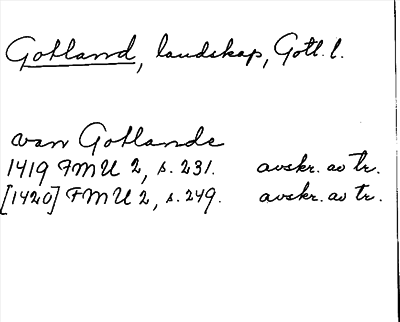 Gotland, landskap, Gotl. l.
van Gotlande
1419 FMU 2, s. 231. avskr. av tr.
[1420] FMU 2, s. 249. avskr. av tr.